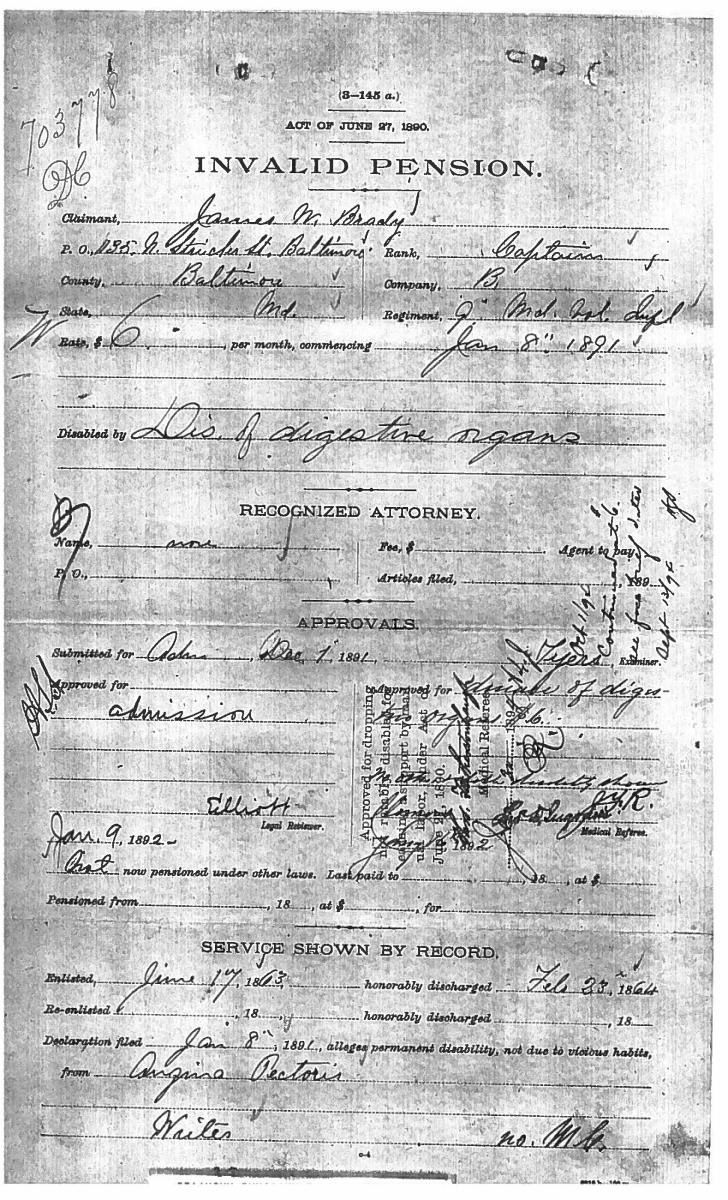 703778
(3-145 a.)
ACT OF JUNE 27, 1890.
INVALID PENSION.
Claimant, James W. Brady
P. O., 1135 N. Stricker St. Baltimore Rank, Captain
County, Baltimore Company, B
State, Md. Regiment, 9" Md. Vol. Inf
Rate, $ 6. per month, commencing Jan 8" 1891
Disabled by Dis. of digestive organs
RECOGNIZED ATTORNEY.
Name, none Fee, $ Agent to pay
P. O., Articles filed, , 189
APPROVALS.
Submitted for Adm , Dec 1" 1891 , Examiner.
Approved for Approved for disease of diges-
admission organs
Approved for dropping
disabled for
support by manual
labor, under Act of
June 27, 1890.
Medical Referee.
Elliott
Legal Reviewer. Medical Referee.
Jan. 9, 1892 1892
Not now pensioned under other laws. Last paid to , 18 , at $
Pensioned from , 18 , at $ , for
SERVICE SHOWN BY RECORD.
Enlisted, June 17, 1863, honorably discharged Feb 23, 1864
Re-enlisted , 18 , honorably discharged , 18
Declaration filed Jan 8", 1891, alleges permanent disability, not due to vicious habits,
from Angina Pectoris
Writes no. M C.